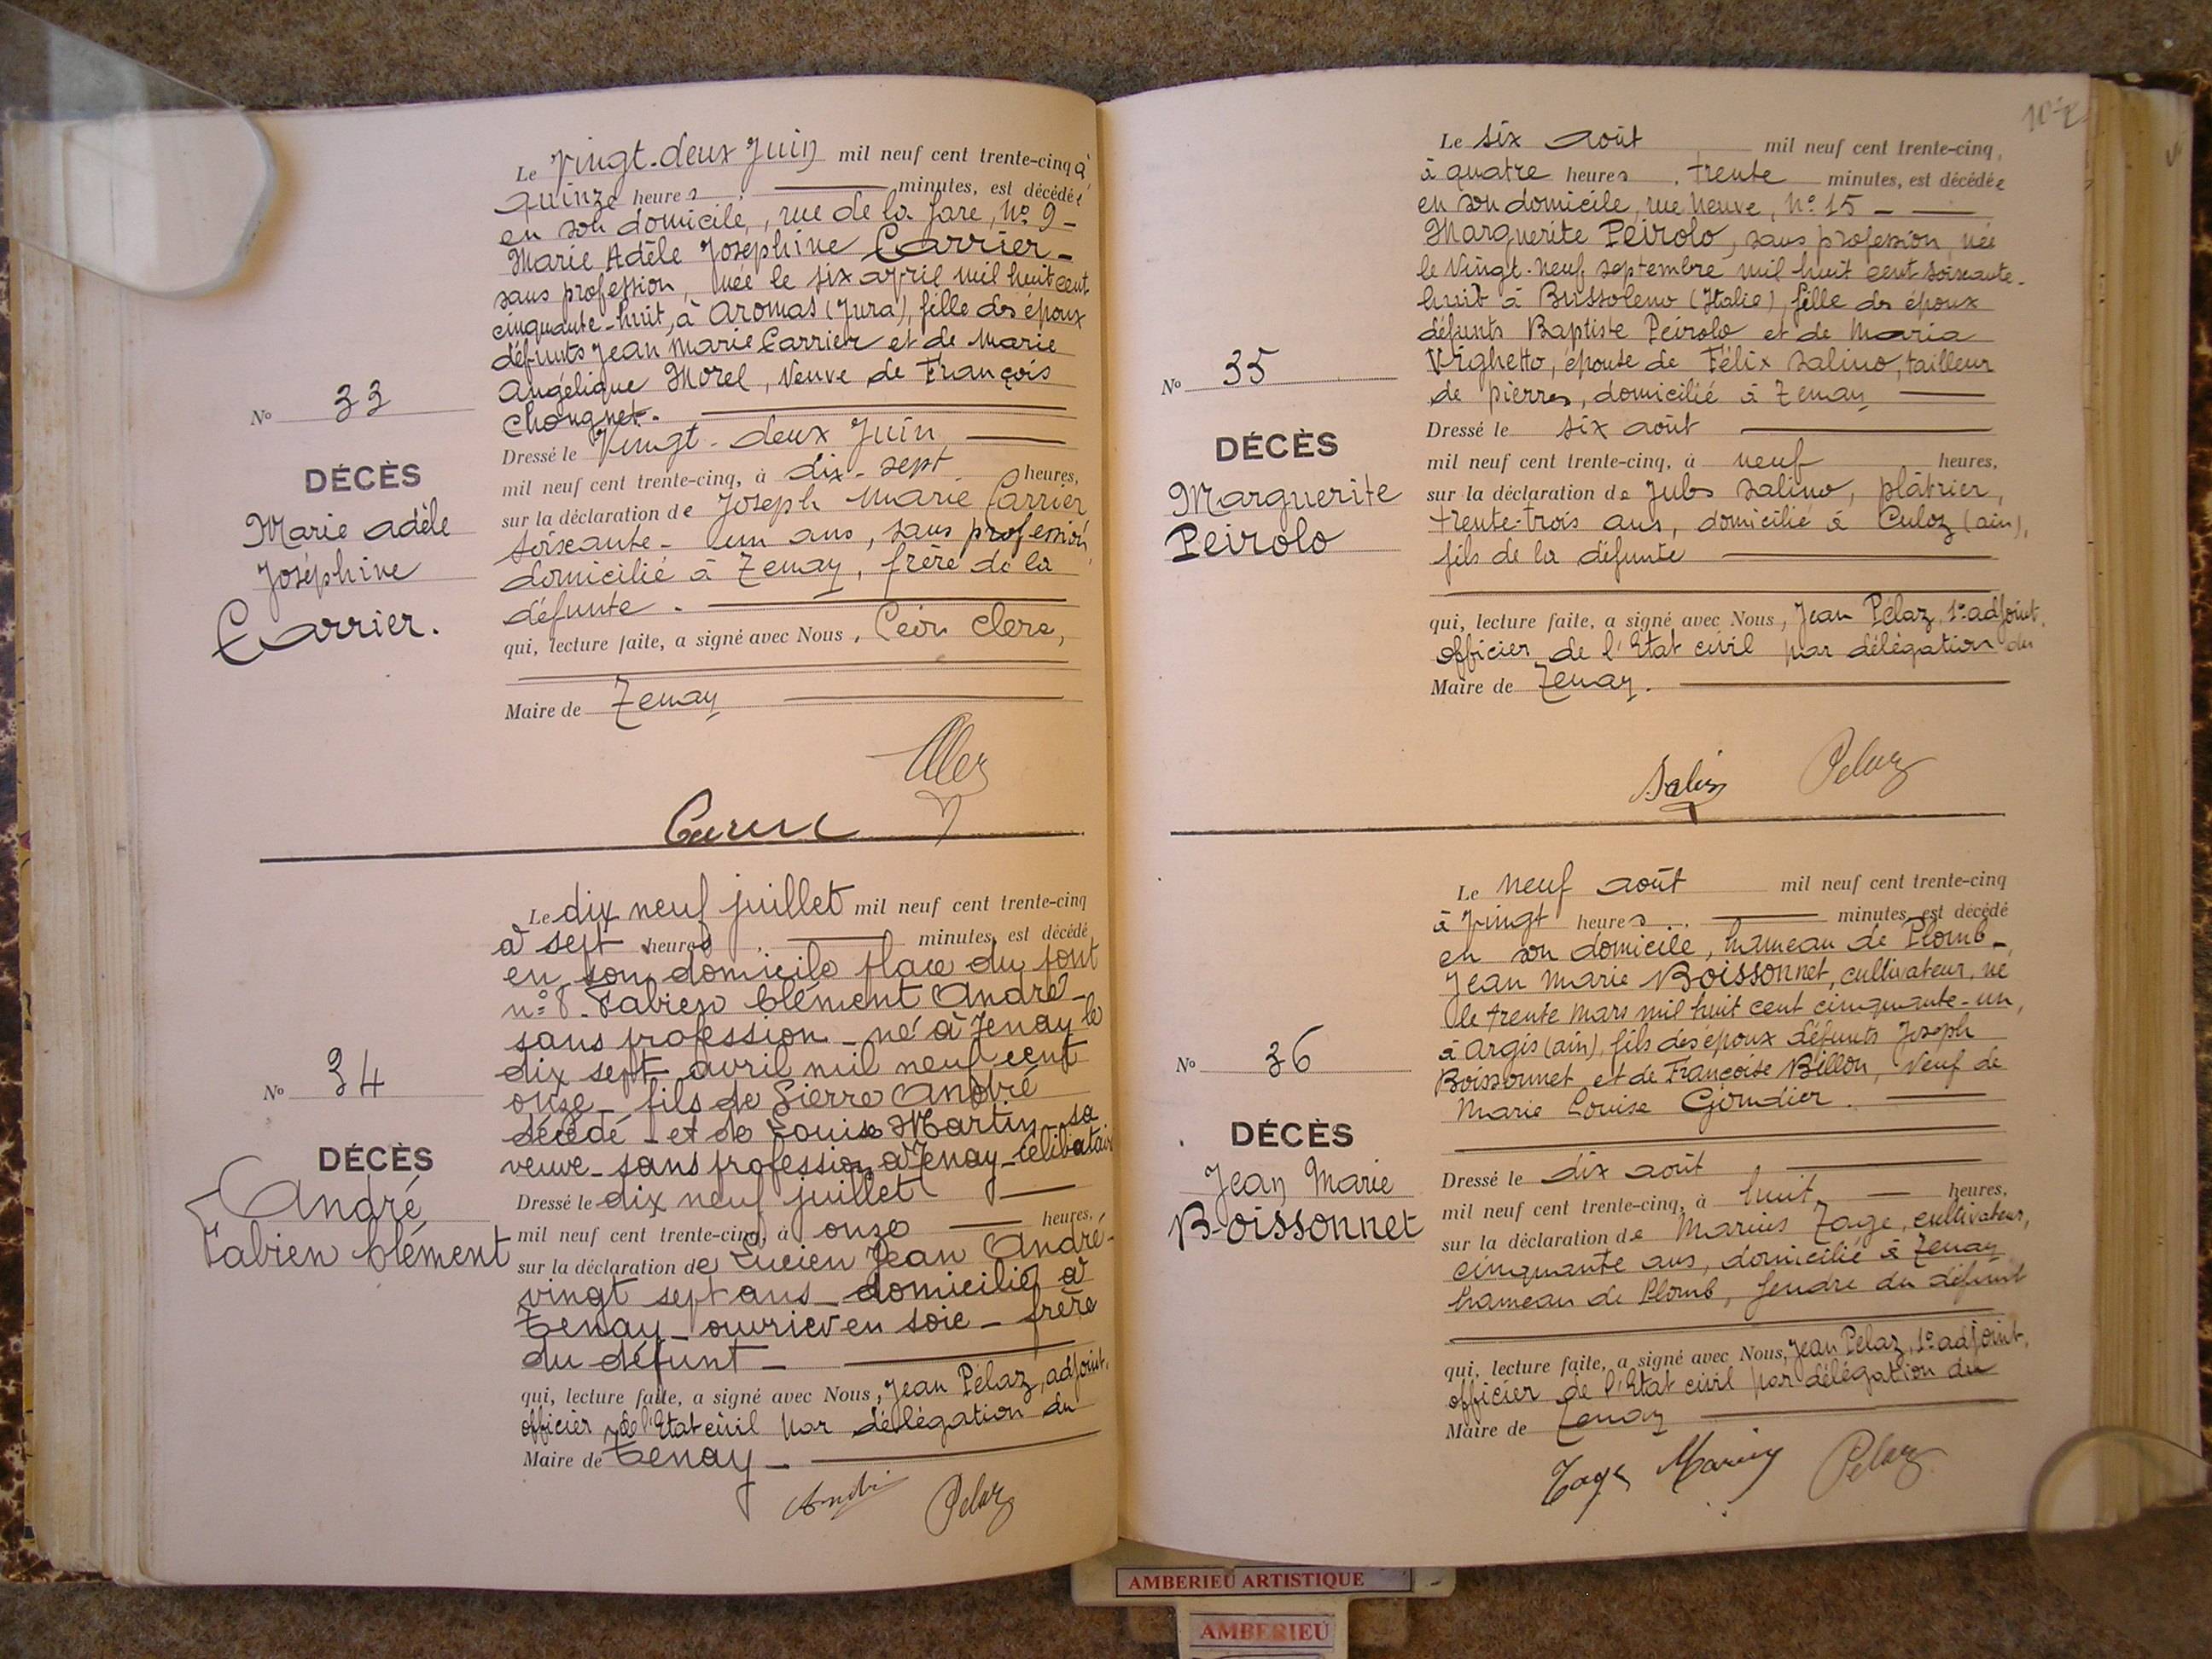 Le Vingt-deux Juin mil neuf cent trente-cinq à
quinze heures, minutes, est décédée
en son domicile, rue de la Gare, No 9 -
Marie Adèle Joséphine Carrier -
sans profession, née le six avril mil huit cent
cinquante-huit, à Aromas (Jura), fille des époux
défunts Jean Marie Carrier et de Marie
Angélique Morel, Veuve de François
Chougnet.
No 33
DÉCÈS
Marie adèle
Joséphine
Carrier.
Dressé le Vingt-deux Juin
mil neuf cent trente-cinq, à dix-sept heures,
sur la déclaration de Joseph Marie Carrier
soixante-un ans, sans profession
domicilié à Tenay, frère de la
défunte.
qui, lecture faite, a signé avec Nous, Léon Clerc,
Maire de Tenay
Le dix neuf juillet mil neuf cent trente-cinq
à sept heures, minutes, est décédé
en son domicile place du pont
n° 8. Fabien Clément André -
sans profession - né à Tenay le
dix sept avril mil neuf cent
onze - fils de Pierre André
décédé - et de Louise Martin sa
veuve - sans profession à Tenay - Célibataire
No 34
DÉCÈS
André
Fabien Clément
Dressé le dix neuf juillet
mil neuf cent trente-cinq, à onze heures,
sur la déclaration de Lucien Jean André -
vingt sept ans - domicilié à
Tenay - ouvrier en soie - frère
du défunt -
qui, lecture faite, a signé avec Nous, Jean Pélaz, adjoint,
officier de l'Etat civil par délégation du
Maire de Tenay -
André Pelaz
Le six août mil neuf cent trente-cinq,
à quatre heures, trente minutes, est décédée
en son domicile, rue Neuve, No 15 -
Marguerite Peirolo, sans profession, née
le Vingt-neuf septembre mil huit cent soixante-
huit à Bussoleno (Italie), fille des époux
défunts Baptiste Peirolo et de Maria
Vighetto, épouse de Félix Salino, tailleur
de pierres, domicilié à Tenay
No 35
DÉCÈS
Marguerite
Peirolo
Dressé le six août
mil neuf cent trente-cinq, à neuf heures,
sur la déclaration de Jules Salino, plâtrier,
trente-trois ans, domicilié à Culoz (ain),
fils de la défunte
qui, lecture faite, a signé avec Nous, Jean Pélaz, 1er adjoint,
officier de l'Etat civil par délégation du
Maire de Tenay.
Salino Pelaz
Le neuf août mil neuf cent trente-cinq
à vingt heures, minutes, est décédé
en son domicile, hameau de Plomb -
Jean Marie Boissonnet, cultivateur, né
le trente Mars mil huit cent cinquante-un,
à Argis (ain), fils des époux défunts Joseph
Boissonnet et de Françoise Billon, Veuf de
Marie Louise Gindier.
No 36
DÉCÈS
Jean Marie
Boissonnet
Dressé le dix août
mil neuf cent trente-cinq, à huit heures,
sur la déclaration de Marius Tage, cultivateur,
cinquante ans, domicilié à Tenay
hameau de Plomb, Gendre du défunt
qui, lecture faite, a signé avec Nous, Jean Pélaz, 1er adjoint,
officier de l'Etat civil par délégation du
Maire de Tenay
Tage Marius Pelaz
AMBERIEU ARTISTIQUE
AMBERIEU